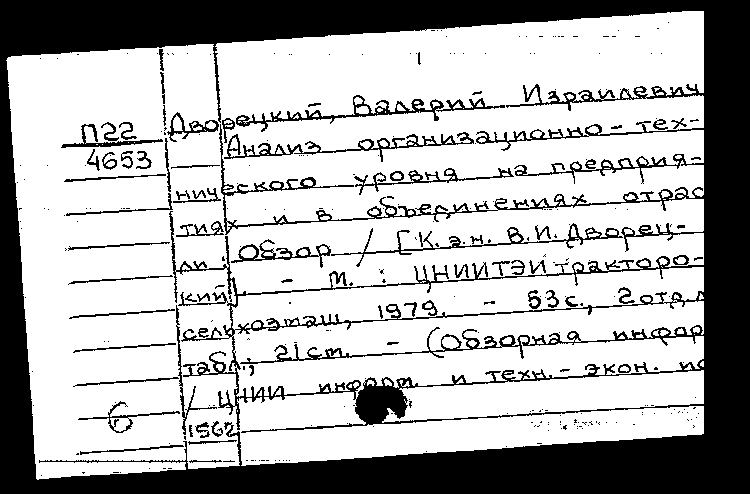 П22
4653
Дворецкий, Валерий Израилевич
Анализ организационно-тех-
нического уровня на предприя-
тиях и в объединениях отрас
ли : Обзор / [К.э.н. В.И. Дворец-
кий]. - М. : ЦНИИТЭИтракторо-
сельхозмаш, 1979. - 53 с., 2 отд. л
табл.; 21 см. - (Обзорная инфор
/ ЦНИИ информ. и техн.-экон. ис
6
1562